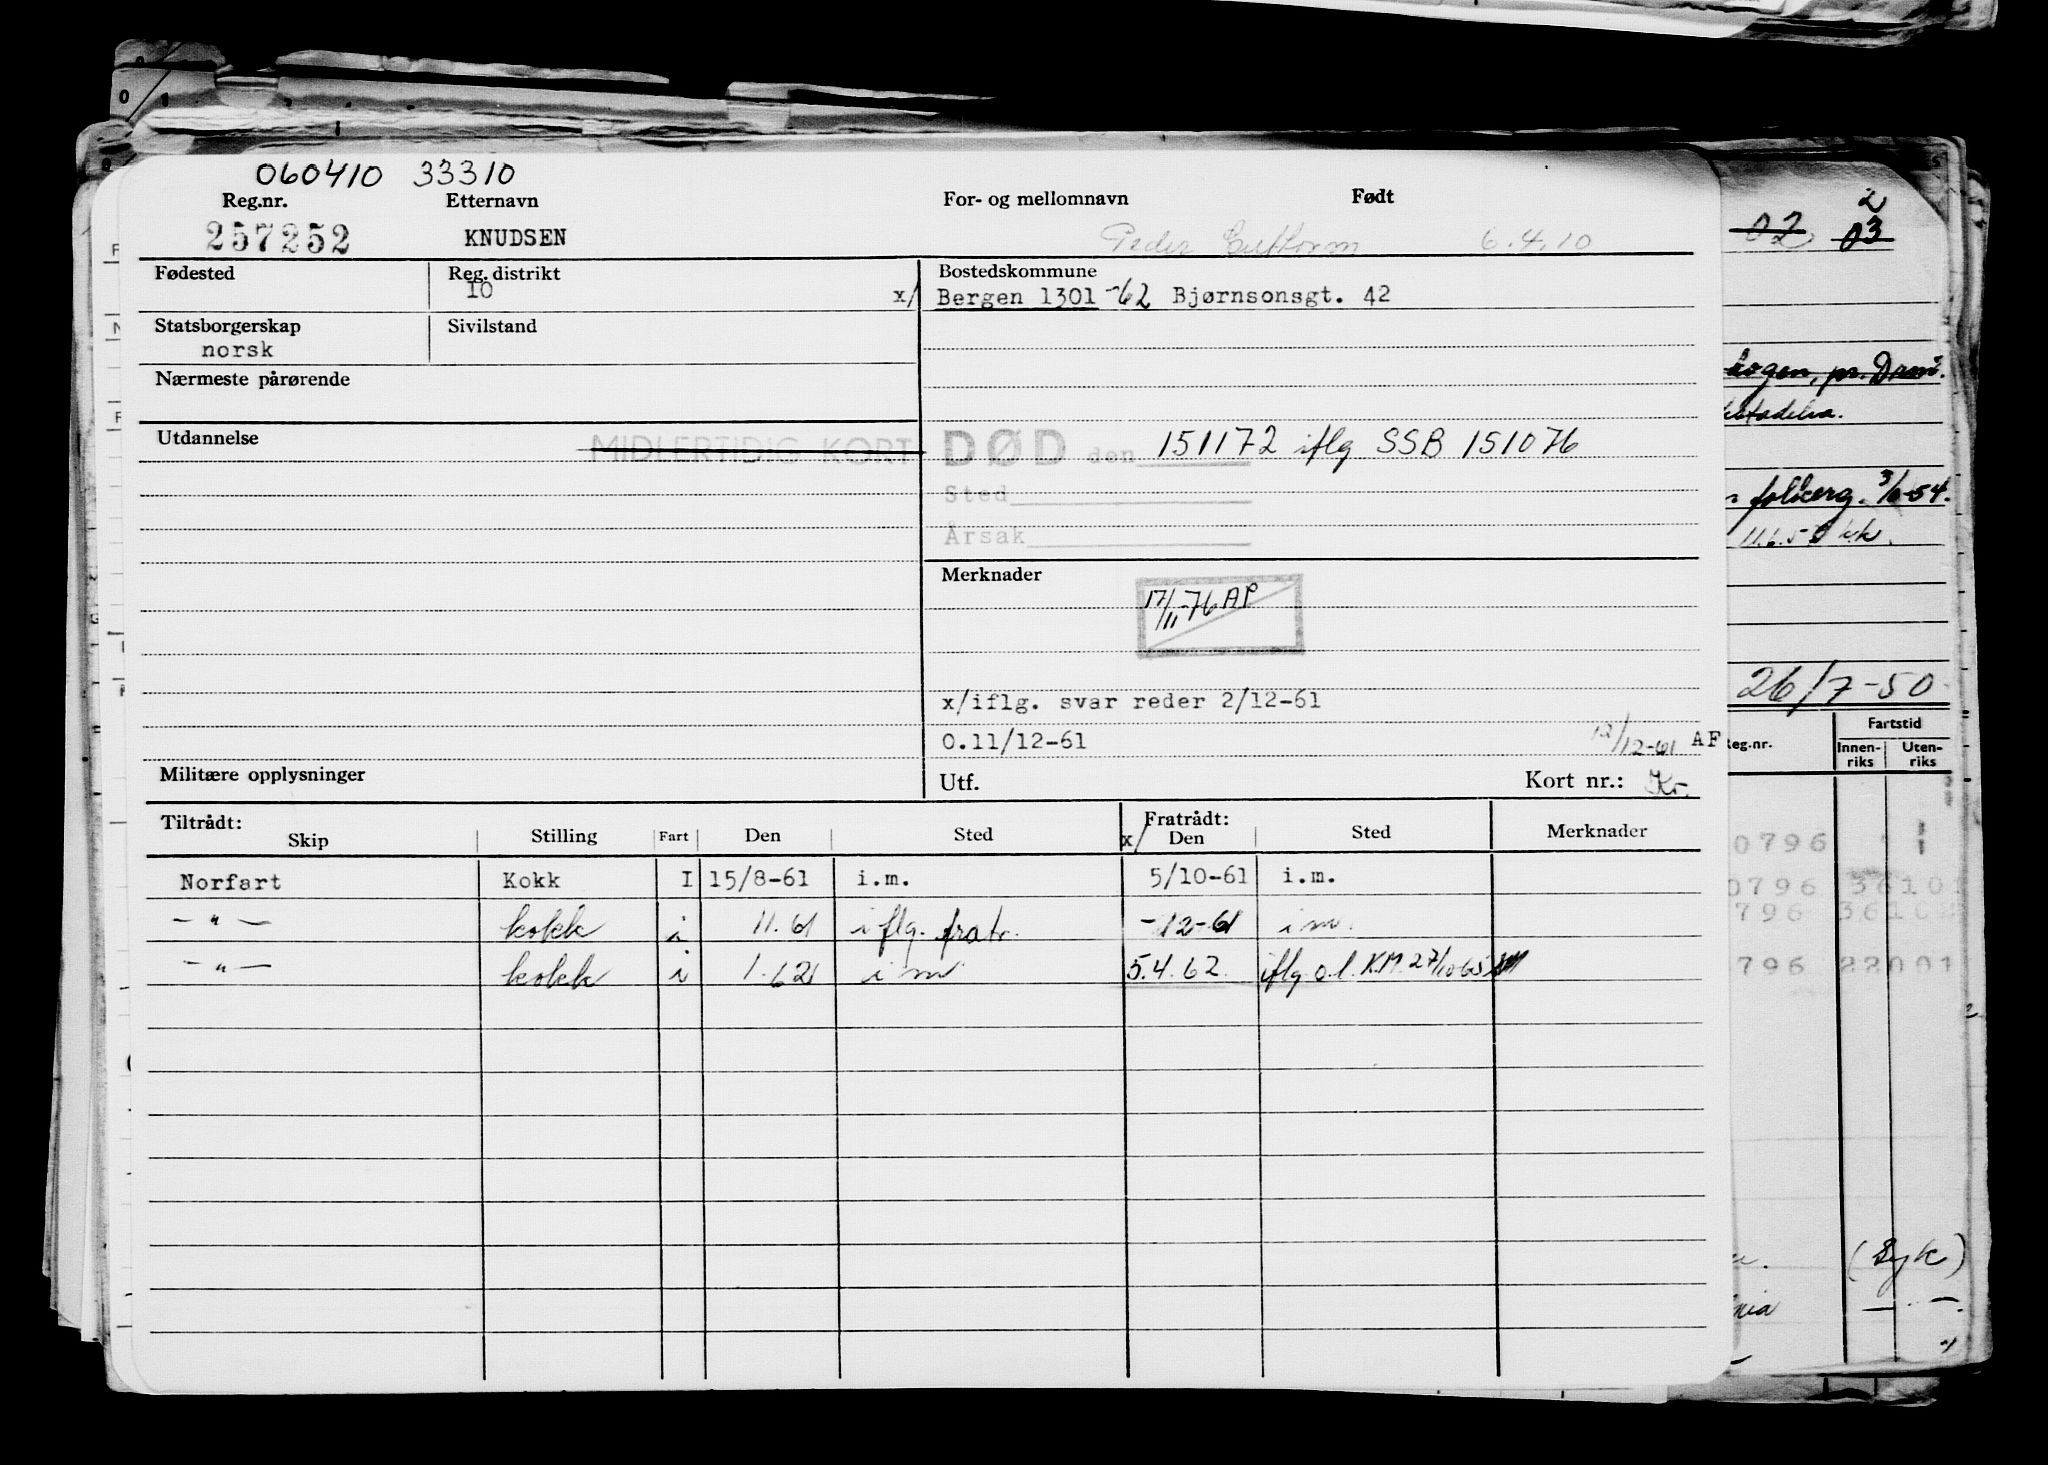 060410 33310
Reg.nr. Etternavn For- og mellomnavn Født
257252 KNUDSEN Peder 6.4.10
Fødested Reg.distrikt Bostedskommune
10 x/ Bergen 1301 -62 Bjørnsonsgt. 42
Statsborgerskap Sivilstand
norsk
Nærmeste pårørende
Utdannelse MIDLERTIDIG KORT DØD den 151172 iflg SSB 151076
Sted
Årsak
Merknader
17/11-76 AP
x/iflg. svar reder 2/12-61
0.11/12-61 12/12-61 AF
Militære opplysninger Utf. Kort nr.: Kr.
Tiltrådt: Fratrådt:
Skip Stilling Fart Den Sted x/ Den Sted Merknader
Norfart Kokk I 15/8-61 i.m. 5/10-61 i.m.
-"- kokk i 11.61 iflg. fratr. -12-61 i m.
-"- kokk i 1.62 i m 5.4.62 iflg o.l. K.M. 27/10-65
02 2
03
kogen, pr. Dam.
folkerg. 3/6-54.
26/7-50
Reg.nr. Fartstid
Innen-riks Uten-riks
0796
0796 36101
796 36102
796 22001
(Syk)